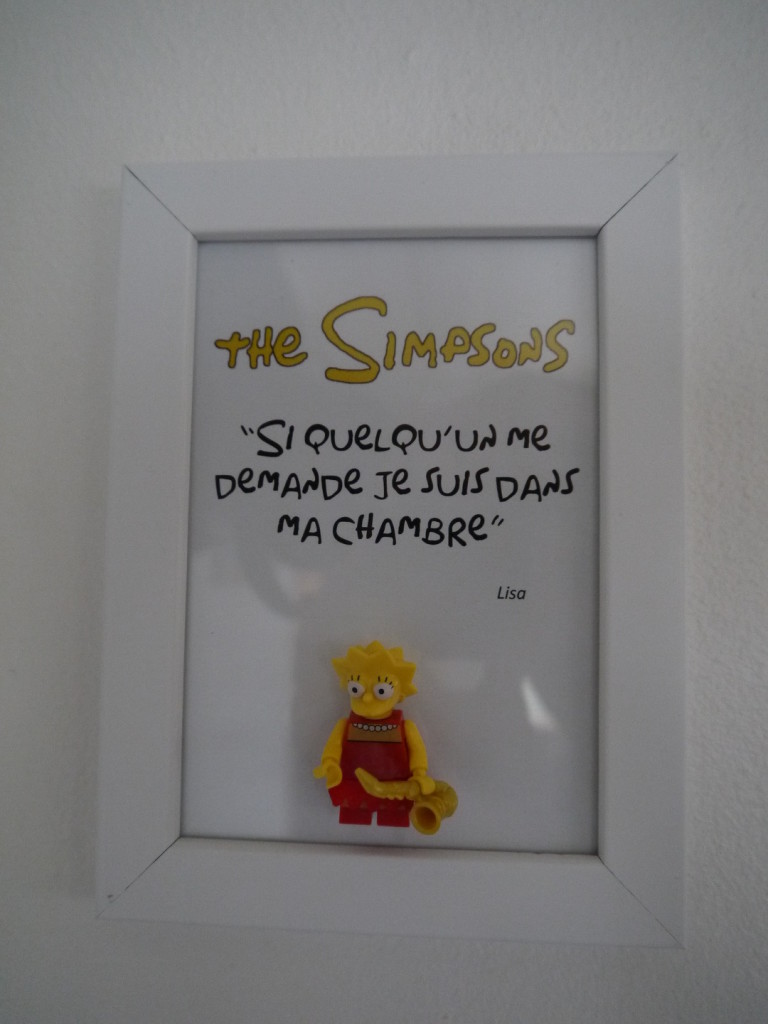 THe SIMPSONS
"SI QUeLQU'UN Me
DeMANDe Je SUIS DANS
MA CHAMBRe"
Lisa